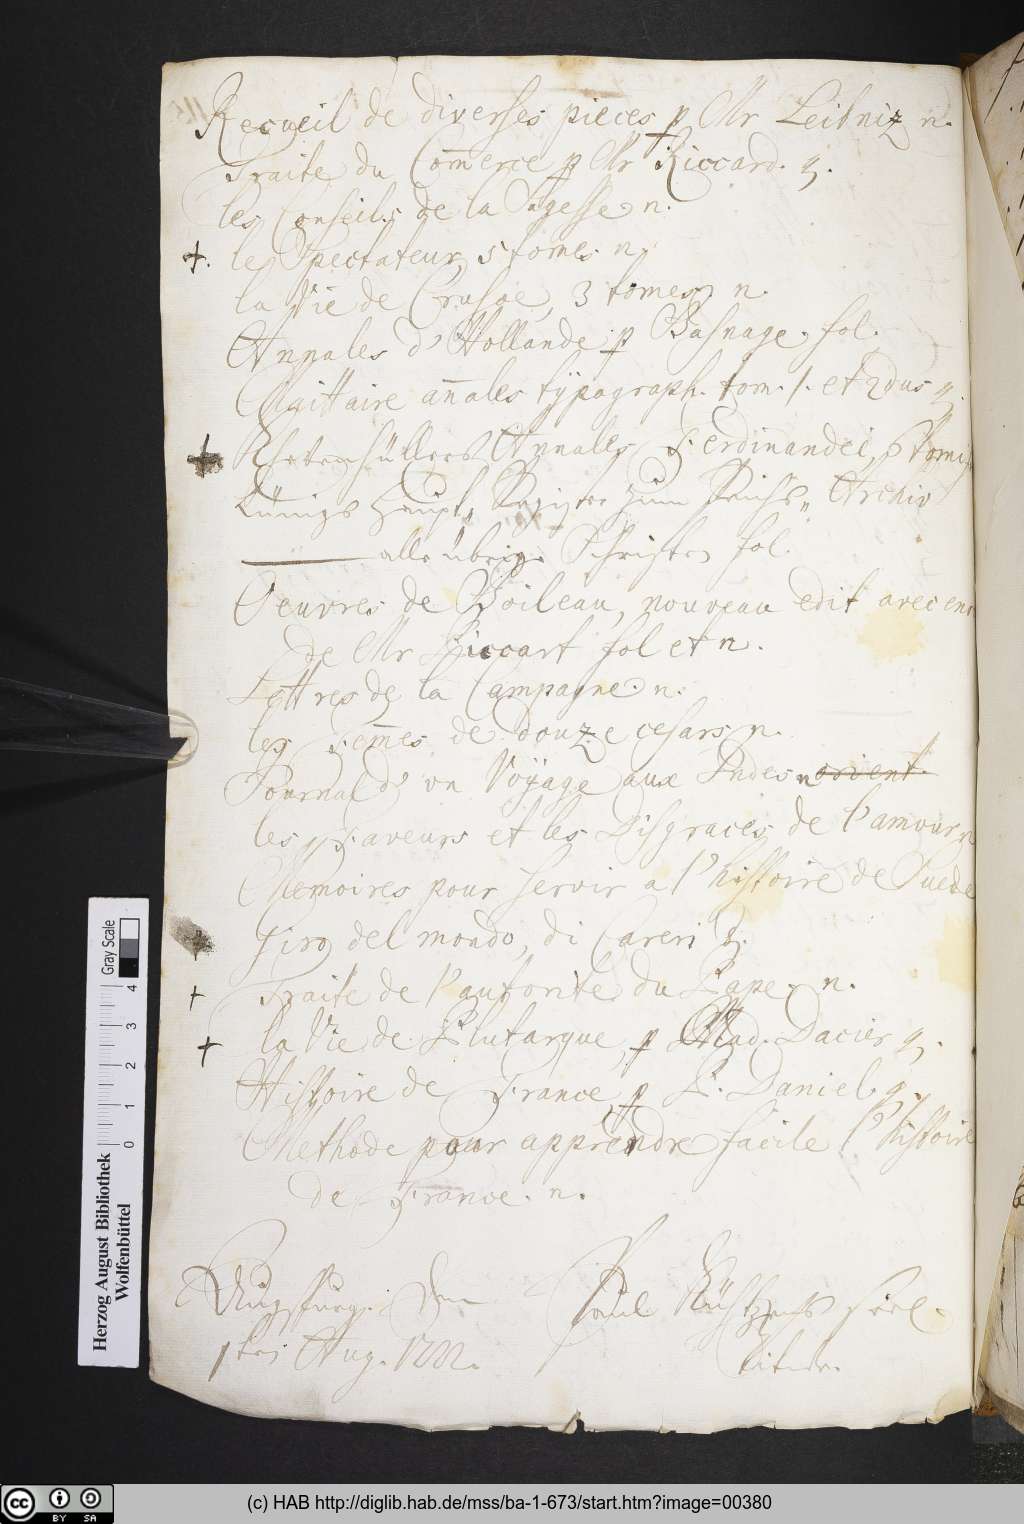 Recueil de diverses pieces p Mr Leibniz n.
Traite du Com̄erce p Mr Riccard. q.
les Conseils de la Sagesse n.
+. le Spectateur 5 tomes n.
la Vie de Crusoe, 3 tomes n.
Annales d'Hollande p Basnage. fol.
Maittaire an̄ales typograph. tom. 1. et 2dus q.
+ Khevenhüllers Annales Ferdinandei,
Lünigs Haupt Register zum Reichs Archiv
alle übrige Schriften fol.
Oeuvres de Boileau, nouveau edit avec
de Mr Piccart fol et n.
Lettres de la Campagne. n.
les Fem̄es de douze cesars n.
Journal d'un Voyage aux Indes n orient.
les Faveurs et les Disgraces de l'amour n
Memoires pour servir a l'histoire de Suede
+ Giro del mondo, di Careri
+ Traite de l'autorite du Pape. n.
+ la Vie de Plutarque, p Mad. Dacier q.
Histoire de France p P. Daniel q.
Methode pour apprendre facile l'histoire
de France. n.
Augspurg. den Paul Kühtzens seel.
1ten Aug. 1722.
Gray Scale
4 3 2 1 0
Herzog August Bibliothek
Wolfenbüttel
cc BY SA
(c) HAB http://diglib.hab.de/mss/ba-1-673/start.htm?image=00380